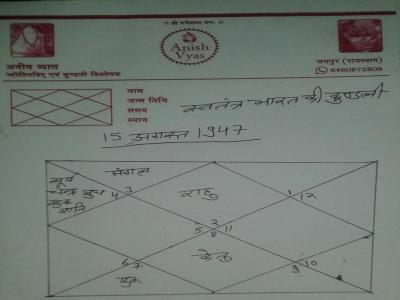 ॥ श्री गणेशाय नमः ॥
Anish
Vyas
अनीष व्यास
ज्योतिषविद् एवं कुण्डली विश्लेषक
जयपुर (राजस्थान)
9460872809
नाम
जन्म तिथि
समय
स्थान
स्वतंत्र भारत की कुण्डली
15 अगस्त 1947
मंगल
सूर्य
चन्द्र बुध
शुक्र
शनि
3
4
राहु
1
12
2
5
11
8
केतु
6
7
गुरु
9
10